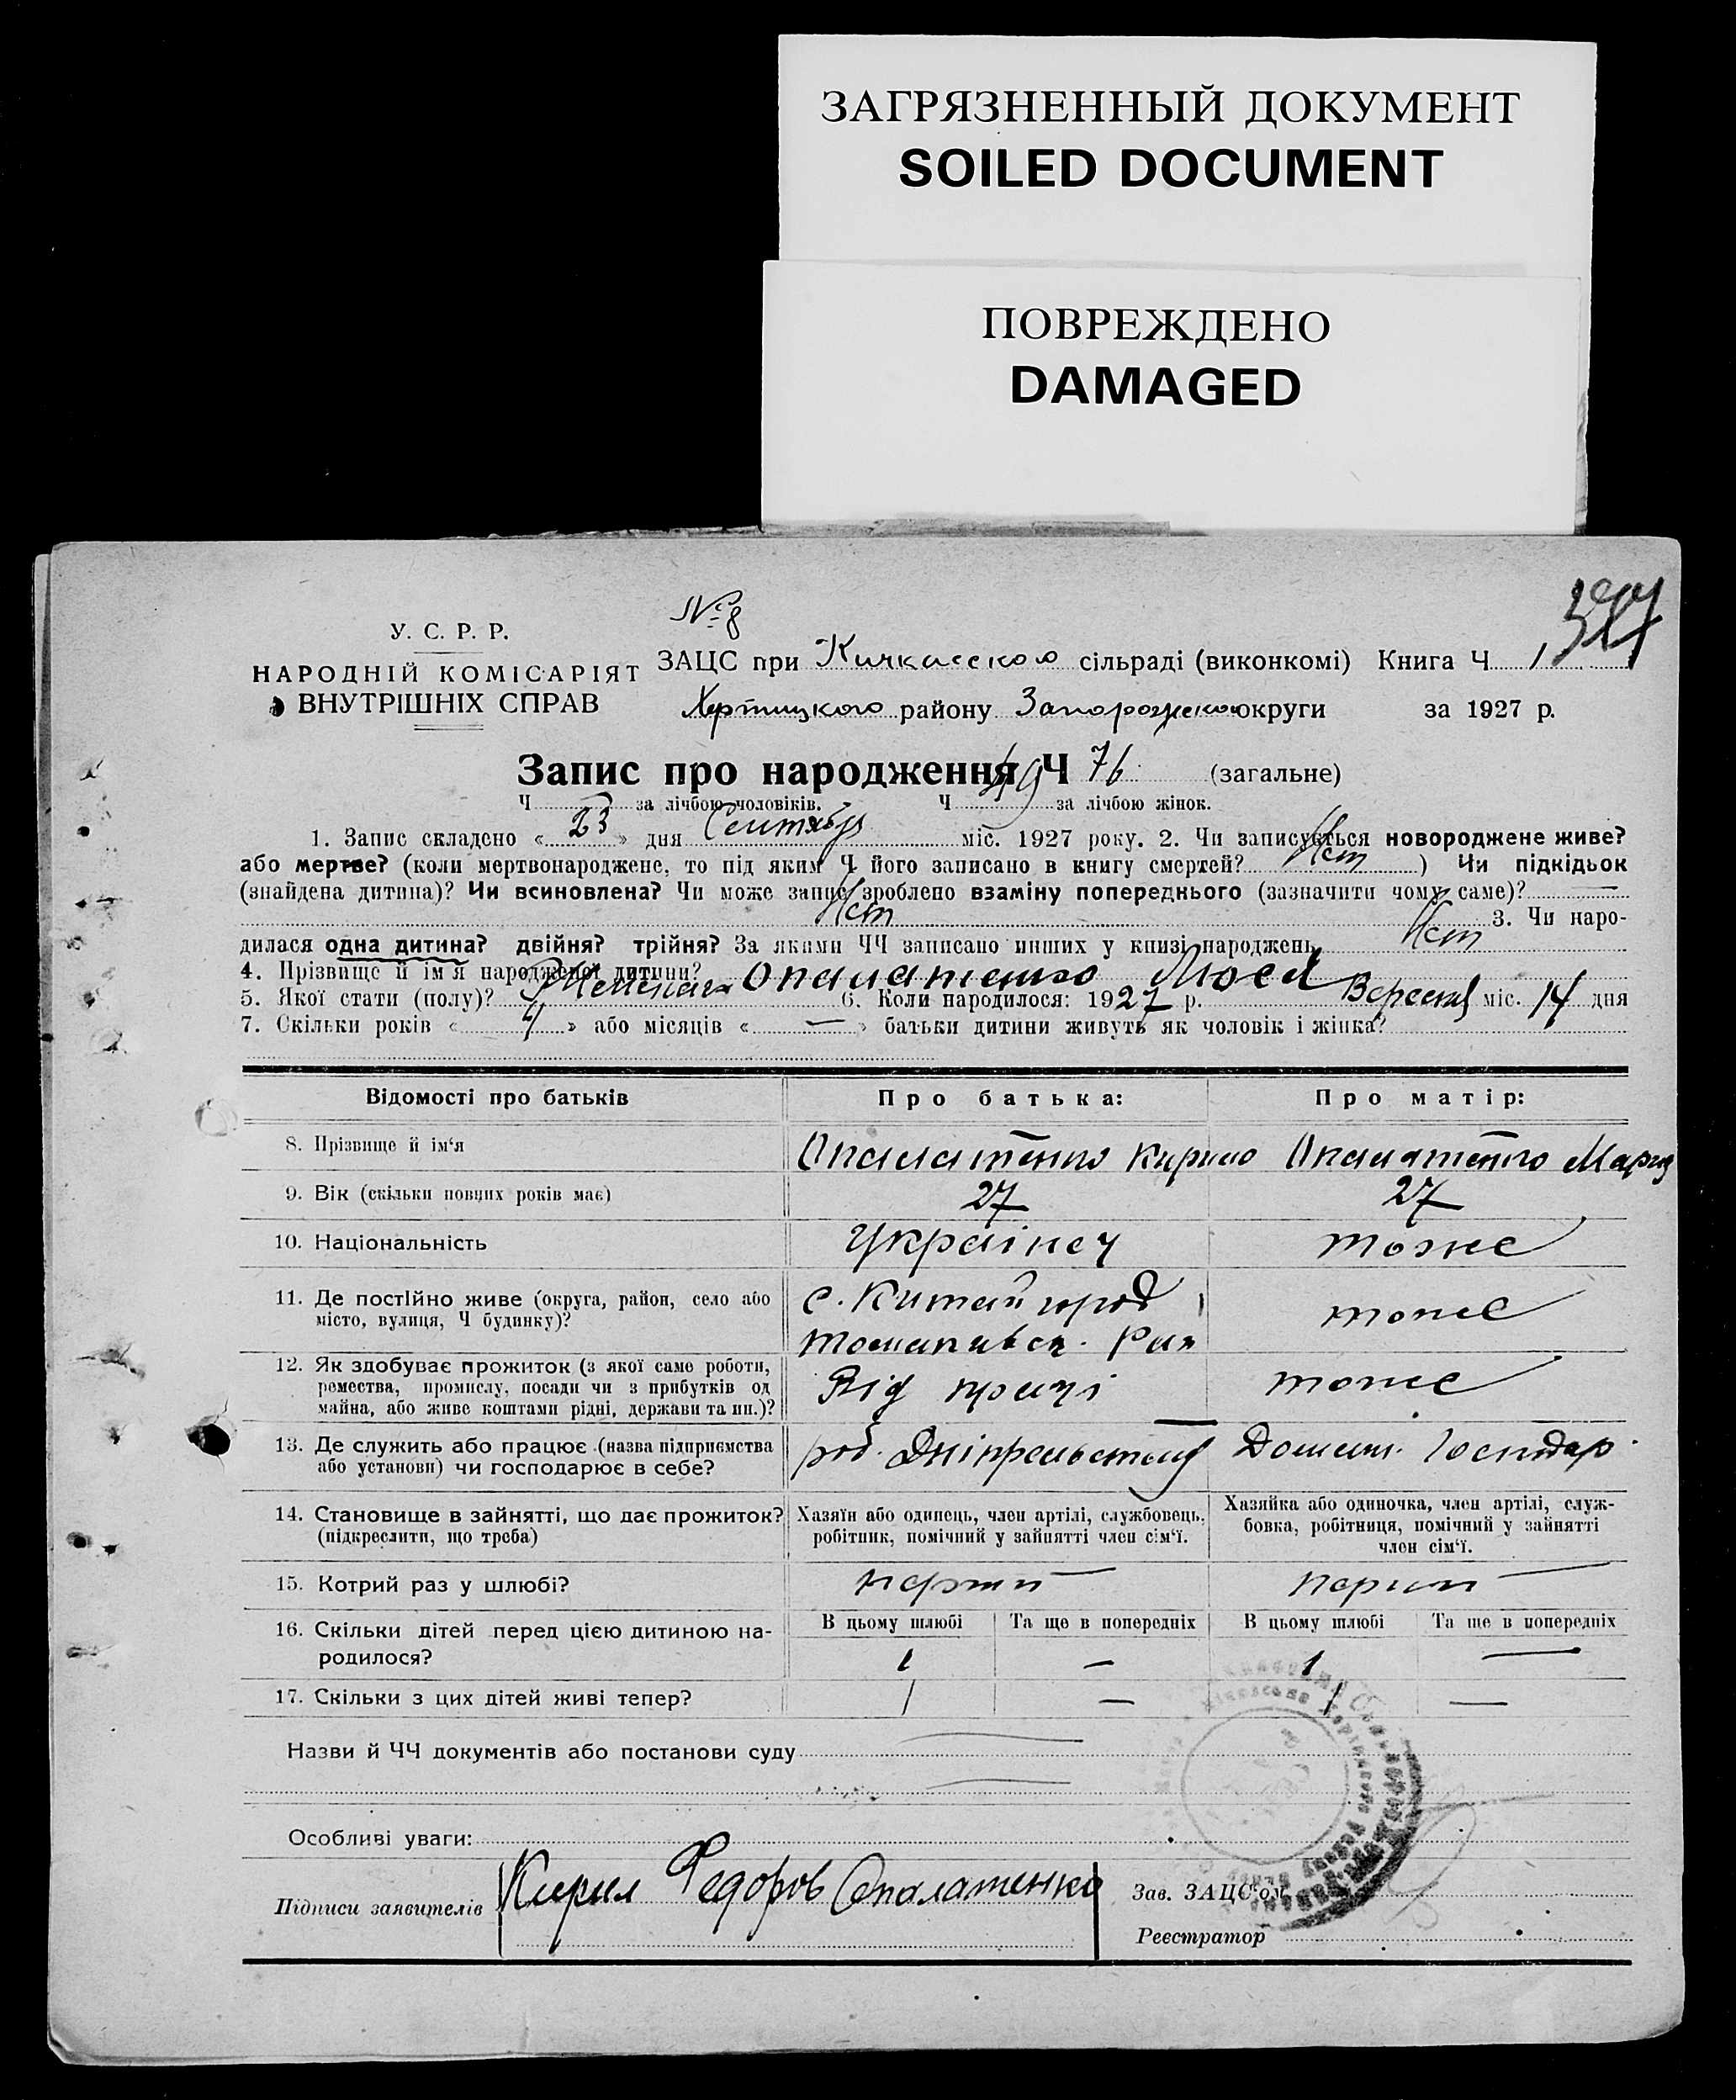 ЗАГРЯЗНЕННЫЙ ДОКУМЕНТ
SOILED DOCUMENT
ПОВРЕЖДЕНО
DAMAGED
№ 8
У. С. Р. Р.
НАРОДНІЙ КОМІСАРІЯТ
ВНУТРІШНІХ СПРАВ
ЗАЦС при Кичкасского сільраді (виконкомі) Книга Ч 1
Хортицкого району Запорожского округи за 1927 р.
Запис про народження Ч 76 (загальне)
Ч за лічбою чоловіків. Ч 49 за лічбою жінок.
1. Запис складено « 23 » дня Сентября міс. 1927 року. 2. Чи записується новороджене живе?
або мертве? (коли мертвонароджене, то під яким Ч його записано в книгу смертей? Нет ) Чи підкідьок
(знайдена дитина)? Чи всиновлена? Чи може запис зроблено взаміну попереднього (зазначити чому саме)? —
Нет 3. Чи наро-
дилася одна дитина? двійня? трійня? За якими ЧЧ записано инших у книзі народжень Нет
4. Прізвище й ім'я народженої дитини? Опалатенко Люся
5. Якої стати (полу)? Женская 6. Коли народилося: 1927 р. Вересня міс. 14 дня
7. Скільки років « 4 » або місяців « — » батьки дитини живуть як чоловік і жінка?
Відомості про батьків Про батька: Про матір:
8. Прізвище й ім'я Опалатенко Кирило Опалатенко Мария
9. Вік (скільки повних років має) 27 27
10. Національність Українец тоже
11. Де постійно живе (округа, район, село або
місто, вулиця, Ч будинку)? с. Китайгород
Томаківск. Рая тоже
12. Як здобуває прожиток (з якої саме роботи,
ремества, промислу, посади чи з прибутків од
майна, або живе коштами рідні, держави та ин.)? Від праці тоже
13. Де служить або працює (назва підприємства
або установи) чи господарює в себе? роб. Дніпрельстану Домашн. Господар.
14. Становище в зайнятті, що дає прожиток?
(підкреслити, що треба)
Хазяїн або одинець, член артілі, службовець,
робітник, помічний у зайнятті член сім'ї.
Хазяйка або одиночка, член артілі, служ-
бовка, робітниця, помічний у зайнятті
член сім'ї.
15. Котрий раз у шлюбі? перший перший
16. Скільки дітей перед цією дитиною на-
родилося?
В цьому шлюбі Та ще в попередніх В цьому шлюбі Та ще в попередніх
1 — 1 —
17. Скільки з цих дітей живі тепер? 1 — 1 —
Назви й ЧЧ документів або постанови суду
Особливі уваги:
Підписи заявителів Кирил Федоров Опалатенко
Зав. ЗАЦС'ом
Реєстратор